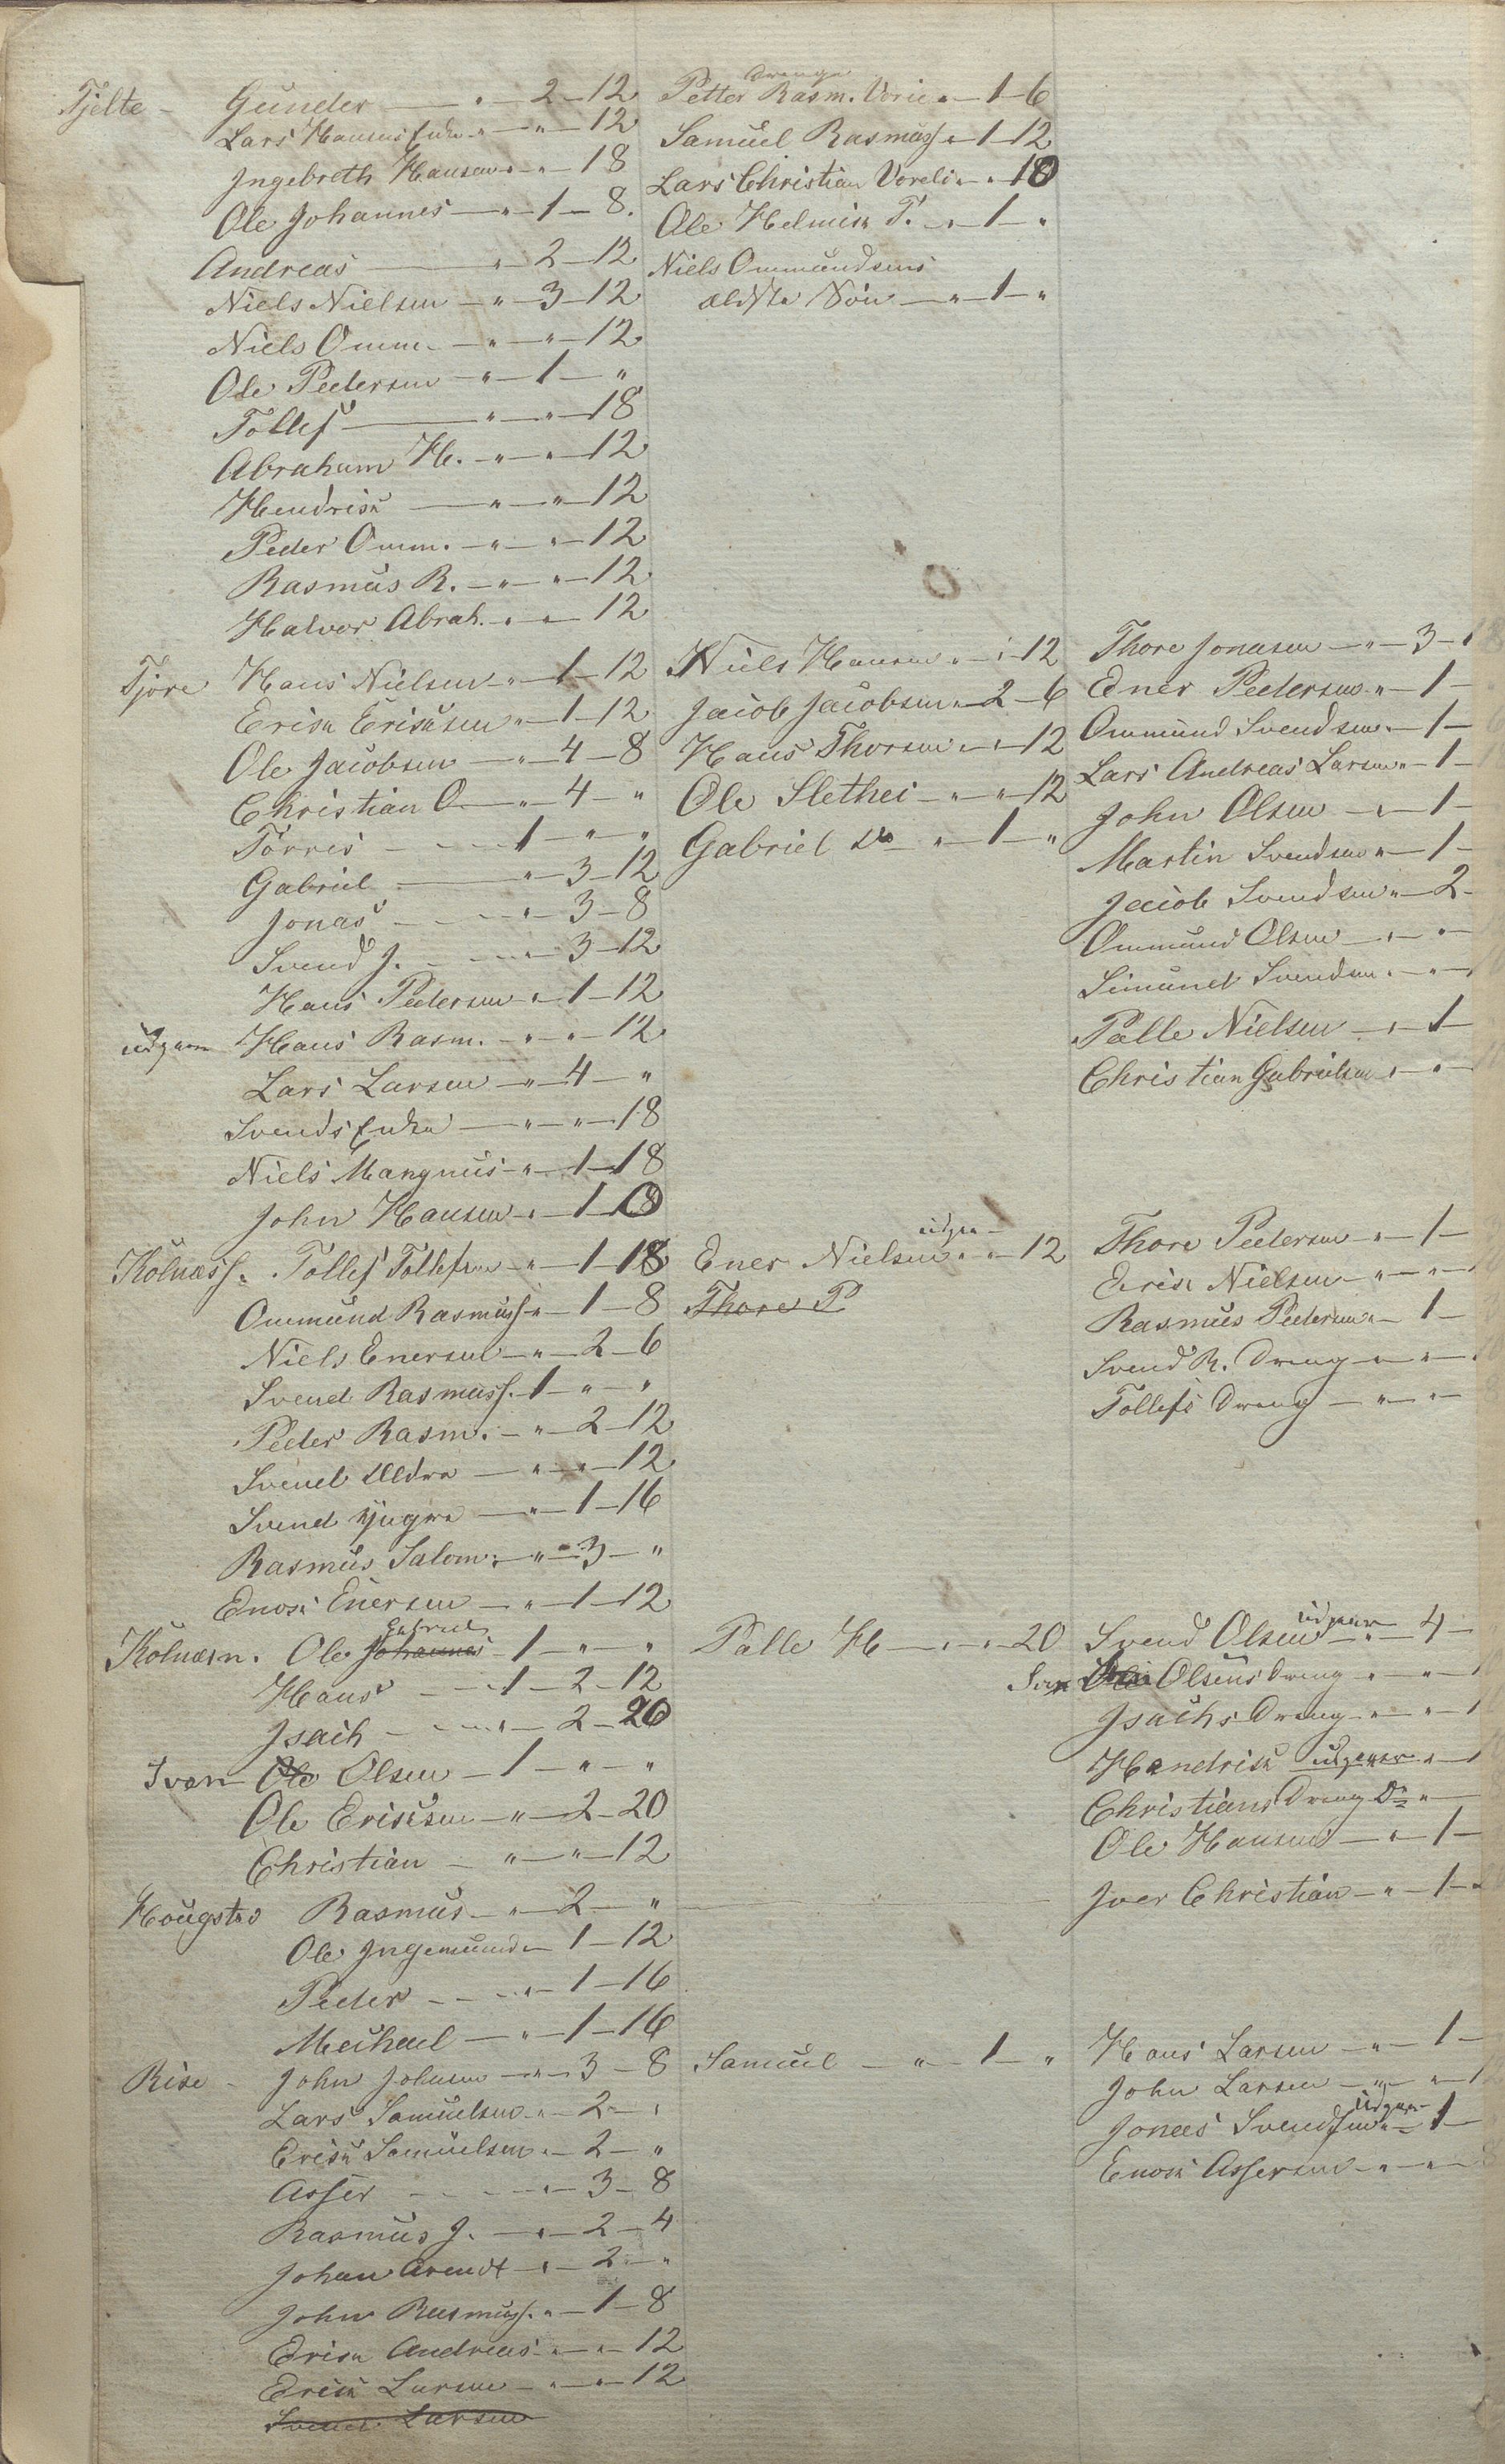 Tjelte - Gunder — " — 2 — 12
Lars Hansens Enke " — " — 12
Ingebreth Hansen " — " — 18
Ole Johannes — " — 1 — 8.
Andreas — " — 2 — 12
Niels Nielsen — " — 3 — 12
Niels Omm. — " — " — 12
Ole Pedersen — " — 1 — "
Tollef — " — " — 18
Abraham H. — " — " — 12
Hendrik — " — " — 12
Peder Omm. — " — " — 12
Rasmus R. — " — " — 12
Halvor Abrah. " — " — 12
Drenge
Petter Rasm. " — 1 — 6
Samuel Rasmuss " — 1 — 12
Lars Christian " — " 18
Ole Helmik T. — " — 1 — "
Niels Ommundsens
ældste Søn — " — 1 — "
Tjore Hans Nielsen — " — 1 — 12
Erik Eriksen " — 1 — 12
Ole Jacobsen — " — 4 — 8
Christian O — " — 4 — "
Törris — 1 — " — "
Gabriel — " — 3 — 12
Jonas — " — 3 — 8
Svend J. — " — 3 — 12
Hans Pedersen — " — 1 — 12
udgaar Hans Rasm. — " — " — 12
Lars Larsen — " — 4 — "
Svends Enke — " — " — 18
Niels Mangnus — " — 1 — 18
John Hansen — " — 1 — 8
Niels Hansen " — " — 12
Jacob Jacobsen " — 2 — 6
Hans Thorsen — " — 12
Ole Slethei — " — " — 12
Gabriel — " — 1 — "
Thore Jonasen — " — 3 — "
Edner Pedersen " — 1 —
Ommund Svendsen " — 1 —
Lars Andreas Larsen " — 1 —
John Olsen — " — 1 —
Martin Svendsen " — 1 —
Jacob Svendsen " — 2 —
Ommund Olsen — " — " —
Simund Svendsen " — " —
Palle Nielsen — " — 1 —
Christian Gabrielsen " — " —
Kolnæs s. Tollef Tollefsen — " — 1 — 18
Ommund Rasmuss " — 1 — 8
Niels Enersen — " — 2 — 6
Svend Rasmuss. 1 — " — "
Peder Rasm. — " — 2 — 12
Svend Ældre — " — " — 12
Svend Yngre — " — 1 — 16
Rasmus Salom. — " — 3 — "
Enok Enersen — " — 1 — 12
udgaar
Ener Nielsen " — " — 12
Thore P
Thore Pedersen — " — 1 —
Erik Nielsen — " — " —
Rasmus Pedersen " — 1 —
Svend R. Dreng — " — " —
Tollefs Dreng — " — " —
Gabriel
Kolnæs n. Ole Johannes — 1 — " — "
Hans — 1 — 2 — 12
Isach — " — 2 — 20
Iven Ole Olsen — 1 — " — "
Ole Eriksen — " — 2 — 20
Christian — " — " — 12
Palle H — " — " — 20
udgaar
Svend Olsen — " — 4 —
Olsens Dreng — " — " —
Isachs Dreng — " — " —
Hendrik udgaar — " —
Christians Dreng Do " —
Ole Hansen — " — 1 —
Iver Christian — " — 1 —
Hougstad Rasmus — " — 2 — "
Ole Ingemund — 1 — 12
Peder — " — 1 — 16
Mechael — " — 1 — 16
Rise - John Johnsen — " — 3 — 8
Lars Samuelsen " — 2 — "
Erik Samuelsen " — 2 — "
Asser — " — 3 — 8
Rasmus J. — " — 2 — 4
Johan Arendt — " — 2 — "
John Rasmuss. " — 1 — 8
Erik Andreas — " — " — 12
Erik Larsen — " — " — 12
Svend Larsen
Samuel — " — 1 — "
Hans Larsen — " — 1 —
John Larsen — " — " —
udgaar
Jonas Svendsen " — 1 —
Enok Assersen — " — " —